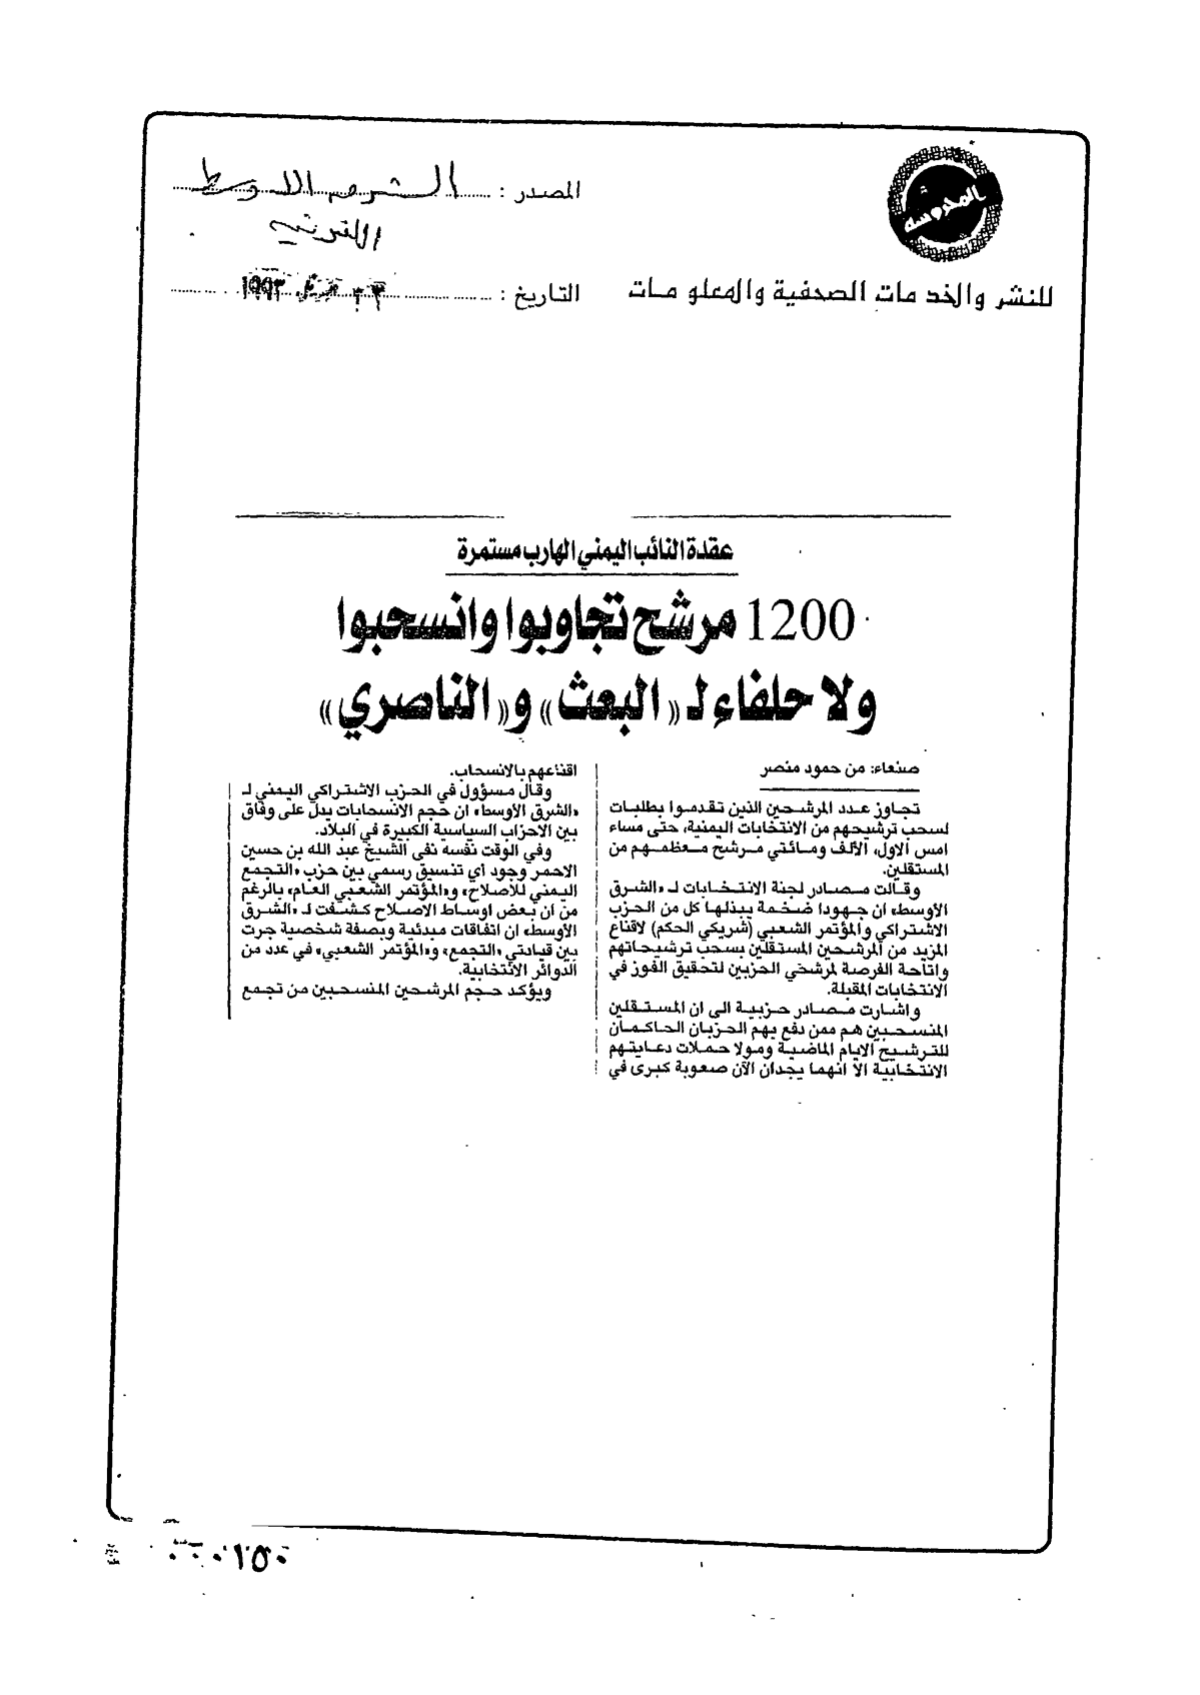 المحروسة
المصدر : الشرق الاوسط
للنشر والخدمات الصحفية والمعلومات
التاريخ : ١٩٩٣
عقدة النائب اليمني الهارب مستمرة
1200 مرشح تجاوبوا وانسحبوا
ولا حلفاء لـ «البعث» و«الناصري»
صنعاء: من حمود منصر
تجاوز عدد المرشحين الذين تقدموا بطلبات
لسحب ترشيحهم من الانتخابات اليمنية، حتى مساء
امس الاول، الألف ومائتي مرشح معظمهم من
المستقلين.
وقالت مصادر لجنة الانتخابات لـ «الشرق
الأوسط» ان جهودا ضخمة يبذلها كل من الحزب
الاشتراكي والمؤتمر الشعبي (شريكي الحكم) لاقناع
المزيد من المرشحين المستقلين بسحب ترشيحاتهم
واتاحة الفرصة لمرشحي الحزبين لتحقيق الفوز في
الانتخابات المقبلة.
واشارت مصادر حزبية الى ان المستقلين
المنسحبين هم ممن دفع بهم الحزبان الحاكمان
للترشيح الايام الماضية ومولا حملات دعايتهم
الانتخابية الا انهما يجدان الآن صعوبة كبرى في
اقناعهم بالانسحاب.
وقال مسؤول في الحزب الاشتراكي اليمني لـ
«الشرق الأوسط» ان حجم الانسحابات يدل على وفاق
بين الاحزاب السياسية الكبيرة في البلاد.
وفي الوقت نفسه نفى الشيخ عبد الله بن حسين
الاحمر وجود اي تنسيق رسمي بين حزب «التجمع
اليمني للاصلاح» و«المؤتمر الشعبي العام» بالرغم
من ان بعض اوساط الاصلاح كشفت لـ «الشرق
الأوسط» ان اتفاقات مبدئية وبصفة شخصية جرت
بين قيادتي «التجمع» و«المؤتمر الشعبي» في عدد من
الدوائر الانتخابية.
ويؤكد حجم المرشحين المنسحبين من تجمع
٠٠٠١٥٠